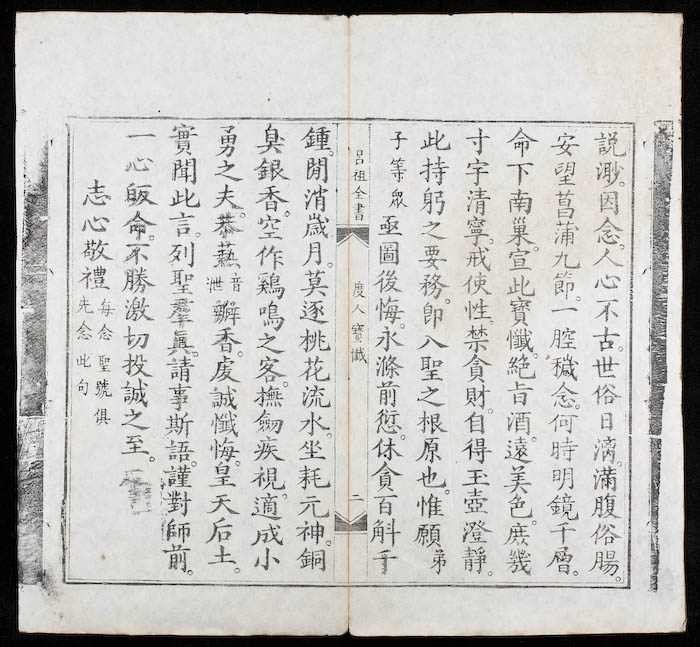 説渺。因念。人心不古。世俗日漓。滿腹俗腸。
安望菖蒲九節。一腔穢念。何時明鏡千層。
命下南巢。宣此寶懺。絶旨酒。遠美色。庶幾
寸宇清寧。戒使性。禁貪財。自得玉壺澄靜。
此持躬之要務。卽入聖之根原也。惟願弟
子等眾亟圖後悔。永滌前愆。休貪百斛千
呂祖全書 度人寶懺 二
鍾。閒消歲月。莫逐桃花流水。坐耗元神。銅
臭銀香。空作鷄鳴之客。撫劒疾視。適成小
勇之夫。恭爇音泄瓣香。虔誠懺悔。皇天后土。
實聞此言。列聖羣真。請事斯語。謹對師前。
一心皈命。不勝激切投誠之至。
志心敬禮 每念聖號俱
先念此句